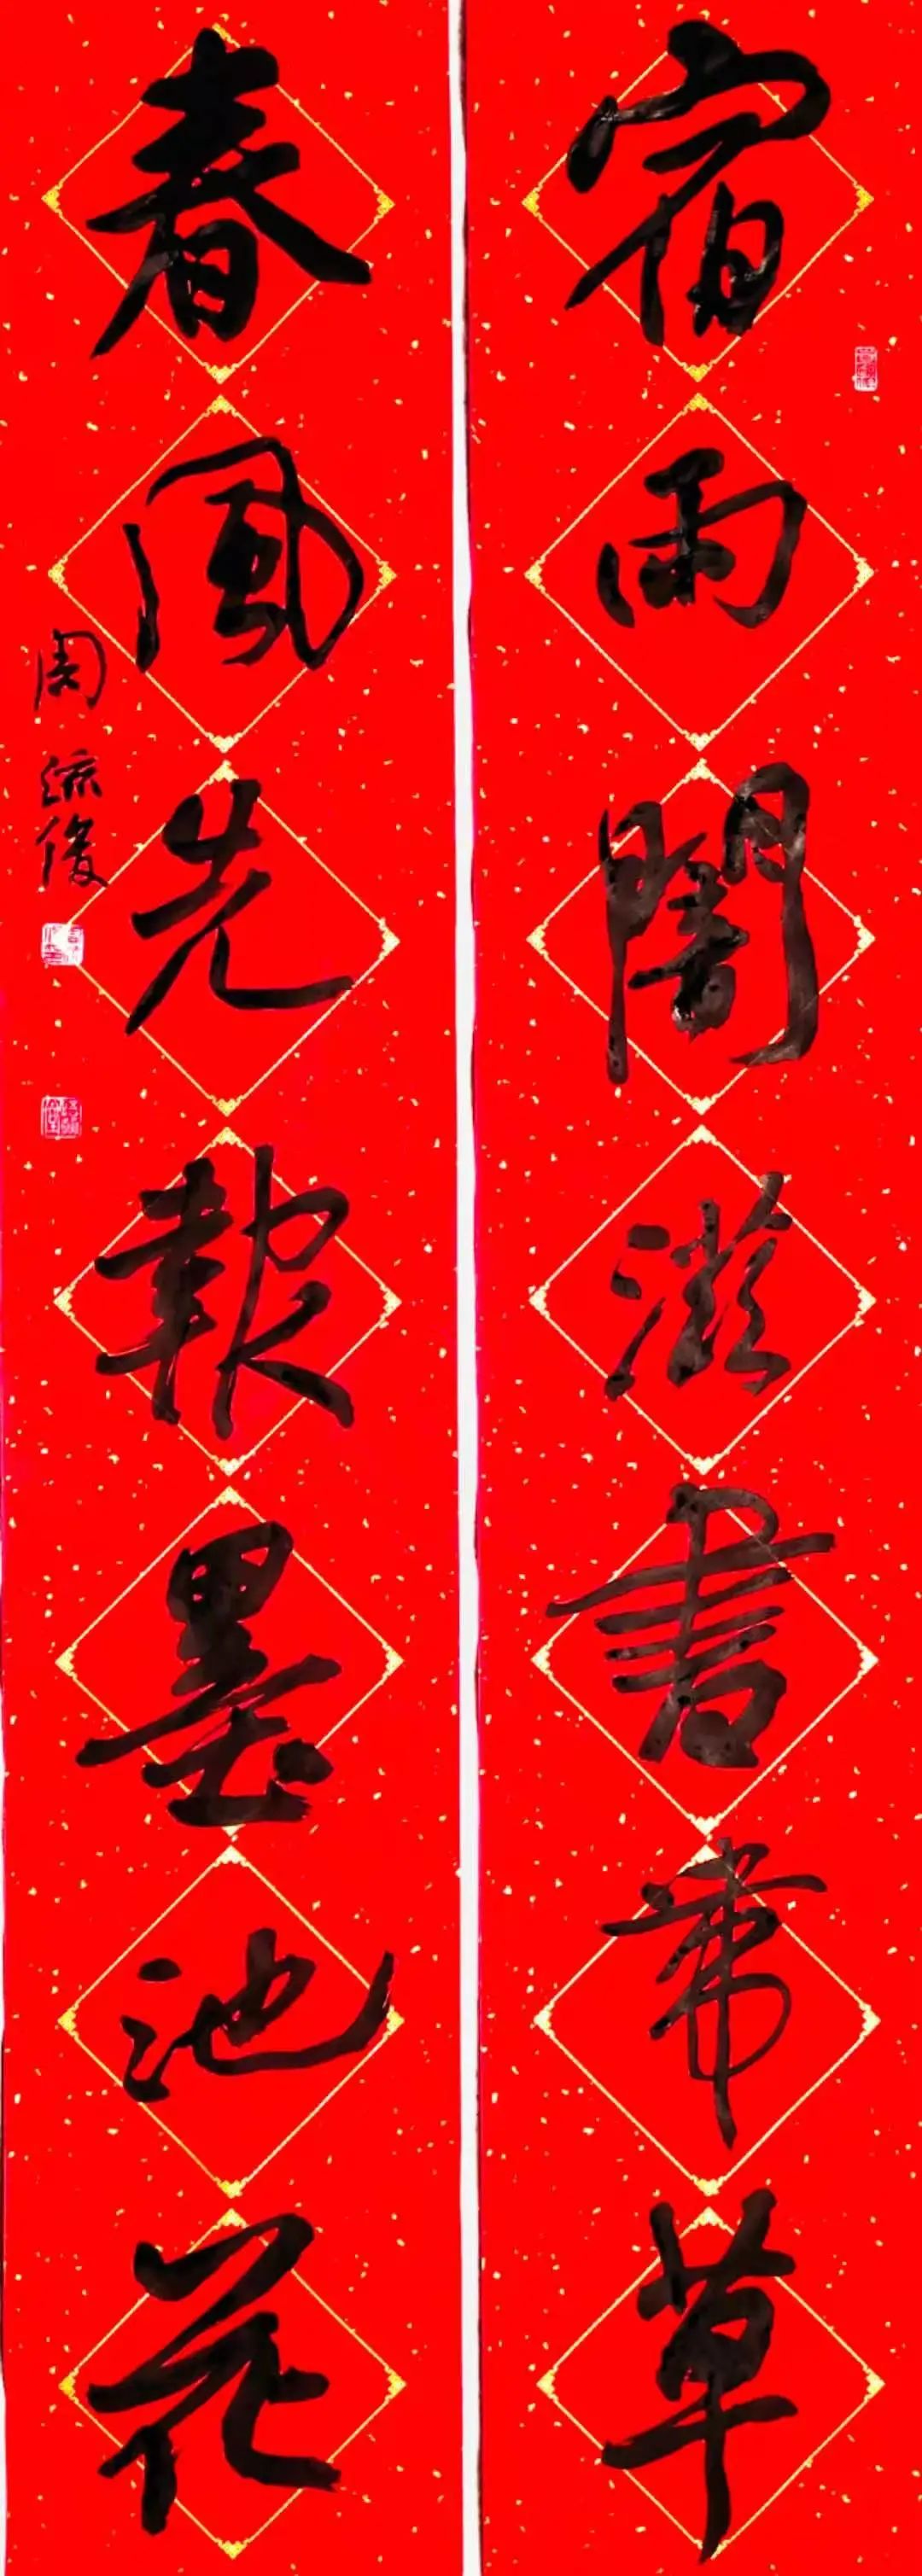 宿雨闇滋書帶草
春風先報墨池花
周流俊